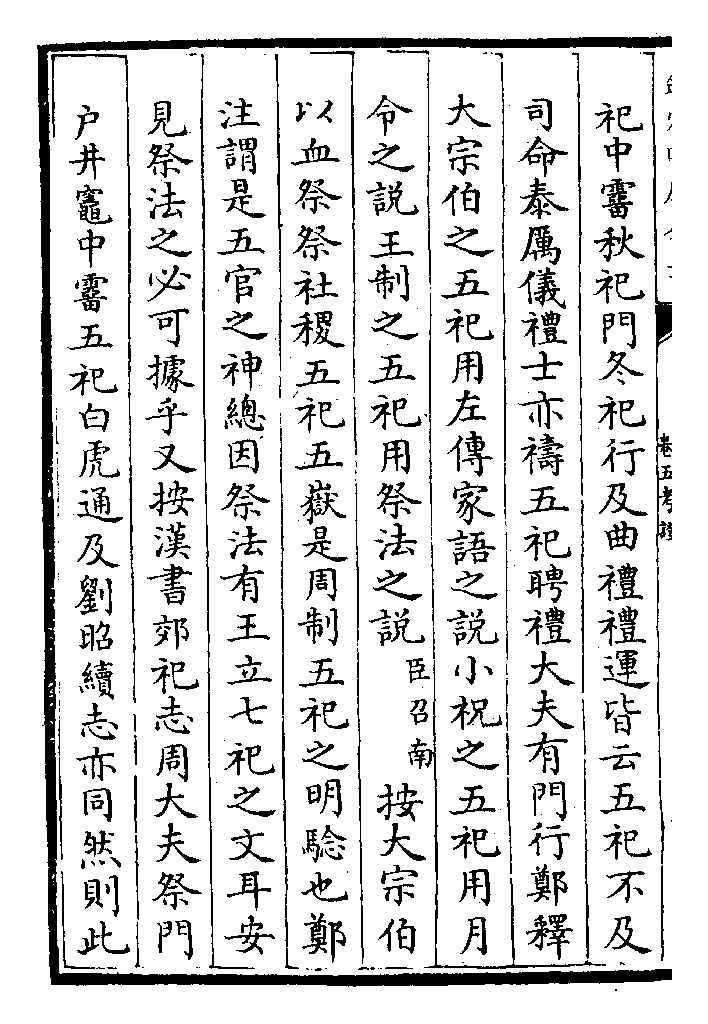 祀中霤秋祀門冬祀行及曲禮禮運皆云五祀不及
司命泰厲儀禮士亦禱五祀聘禮大夫有門行鄭釋
大宗伯之五祀用左傳家語之說小祝之五祀用月
令之說王制之五祀用祭法之說臣召南按大宗伯
以血祭祭社稷五祀五嶽是周制五祀之明驗也鄭
注謂是五官之神總因祭法有王立七祀之文耳安
見祭法之必可據乎又按漢書郊祀志周大夫祭門
户井竈中霤五祀白虎通及劉昭續志亦同然則此
卷五考證